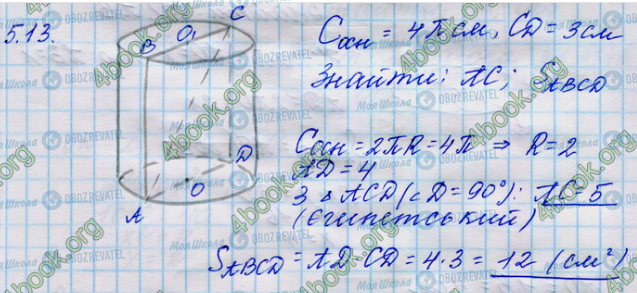 5.13.
C
B O₁
D
O
A
Cосн = 4π см, CD = 3 см
Знайти: AC; S_ABCD
Cосн = 2πR = 4π ⇒ R = 2
AD = 4
З Δ ACD (∠D = 90°): AC = 5
(Єгипетський)
S_ABCD = AD · CD = 4 · 3 = 12 (см²)
4book.org
Моя Школа
OBOZREVATEL